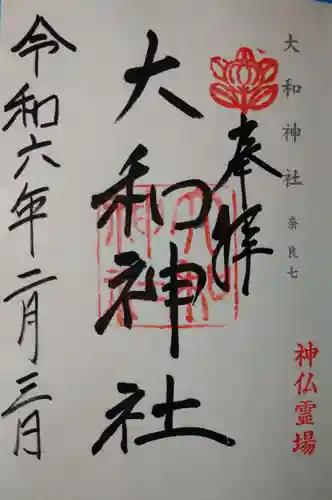 大和神社 奈良七
神仏霊場
奉拝
大和神社
令和六年二月三月